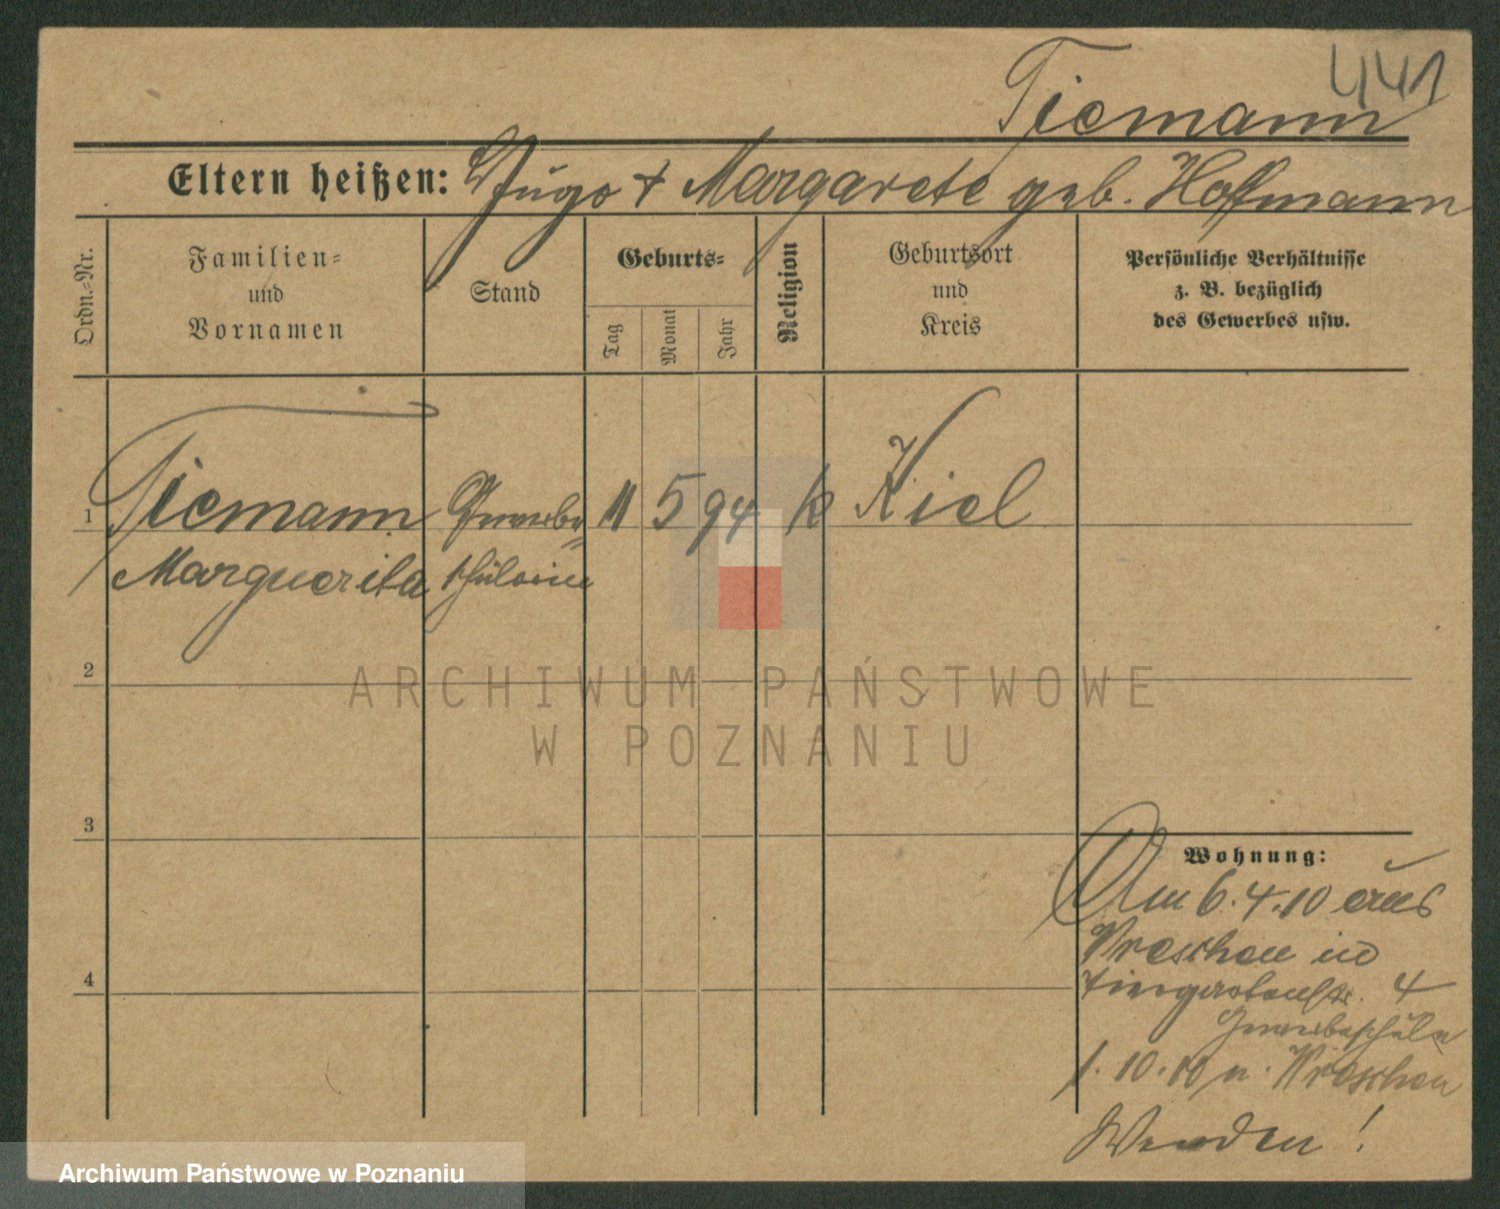 441
Tiemann
Eltern heißen: Hugo + Margarete geb. Hoffmann
Ordn.-Nr.
Familien-
und
Vornamen
Stand
Geburts-
Tag
Monat
Jahr
Religion
Geburtsort
und
Kreis
Persönliche Verhältnisse
z. B. bezüglich
des Gewerbes usw.
1 Tiemann Gewerbe- 11 5 94 k Kiel
Marguerita schülerin
2
ARCHIWUM PAŃSTWOWE
W POZNANIU
3
Wohnung:
Am 6.4.10 aus
Wreschen in
Tiergartenstr. 4
Gewerbeschule
1.10.10 n. Wreschen
4
Wenden!
Archiwum Państwowe w Poznaniu